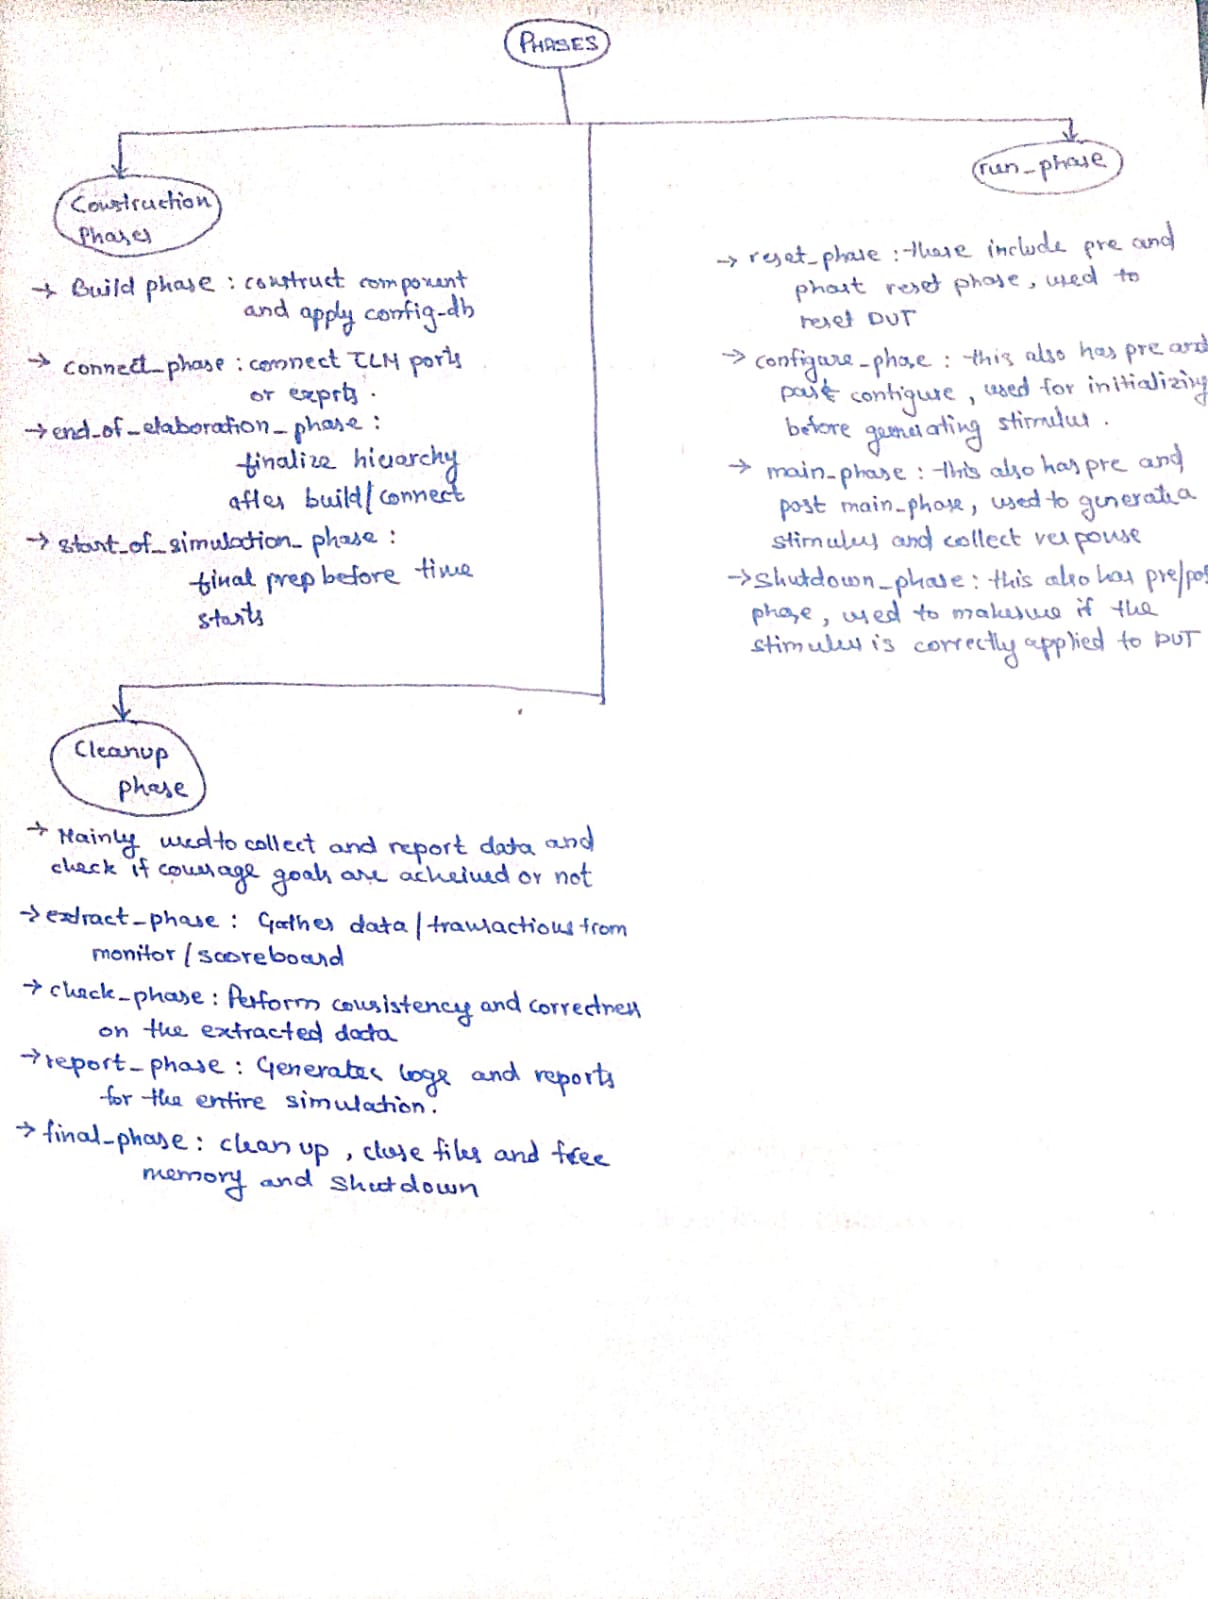 PHASES
Construction
Phases
→ Build phase : construct component
and apply config-db
→ connect_phase : connect TLM ports
or exprts .
→ end_of_elaboration_phase :
finalize hierarchy
after build/connect
→ start_of_simulation_phase :
final prep before time
starts
run_phase
→ reset_phase : these include pre and
phost reset phase, used to
reset DUT
→ configure_phase : this also has pre and
post configure, used for initializing
before generating stimulus .
→ main_phase : this also has pre and
post main_phase, used to generate a
stimulus and collect response
→ shutdown_phase : this also has pre/pos
phase, used to makesure if the
stimulus is correctly applied to DUT
Cleanup
phase
→ Mainly used to collect and report data and
check if coverage goals are acheived or not
→ extract_phase : Gather data/transactions from
monitor/scoreboard
→ check_phase : Perform consistency and correctness
on the extracted data
→ report_phase : Generates logs and reports
for the entire simulation.
→ final_phase : clean up, close files and free
memory and shutdown